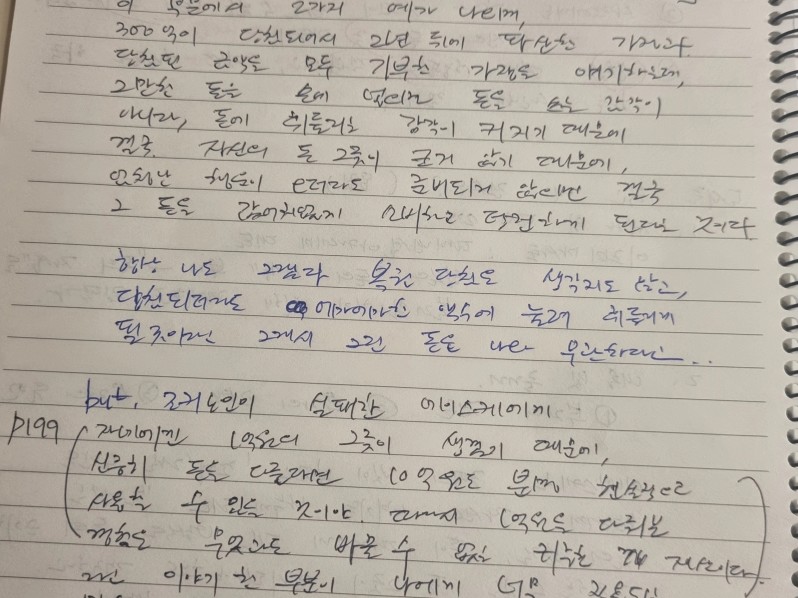 이 부분에서 2가지 예가 나뉘게,
300억이 당첨되어서 2년 뒤에 파산한 가정과
당첨된 금액을 모두 기부한 가정을 얘기하는데,
그만한 돈을 손에 없이는 돈을 쓰는 감각이
아니라, 돈에 휘둘리는 감각이 커지기 때문에
결국 자신의 돈 그릇이 크지 않기 때문에,
엄청난 행운이 오더라도 준비되지 않으면 결국
그 돈을 값어치없게 소비하고 탕진하게 된다는 것이다
항상 나도 그랬다 복권 당첨은 생각지도 않고,
당첨되더라도 어마어마한 액수에 눌려 휘둘리게
될 것이란 그래서 그런 돈은 나와 무관하다고...
but, 조커노인이 실패한 에이스케에게
p199 자네에겐 1억원의 그릇이 생겼기 때문에,
신중히 돈을 다룬다면 10억원도 분명 현실적으로
사용할 수 있을 것이야. 따라서 1억원을 다뤄본
경험은 무엇과도 바꿀 수 없는 귀중한 자산이다.
라는 이야기 한 부분이 나에게 너무